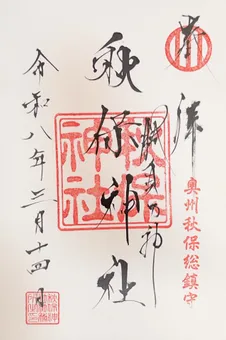 奉拝
奥州秋保総鎮守
秋保神社
秋保神社
令和八年三月十四日